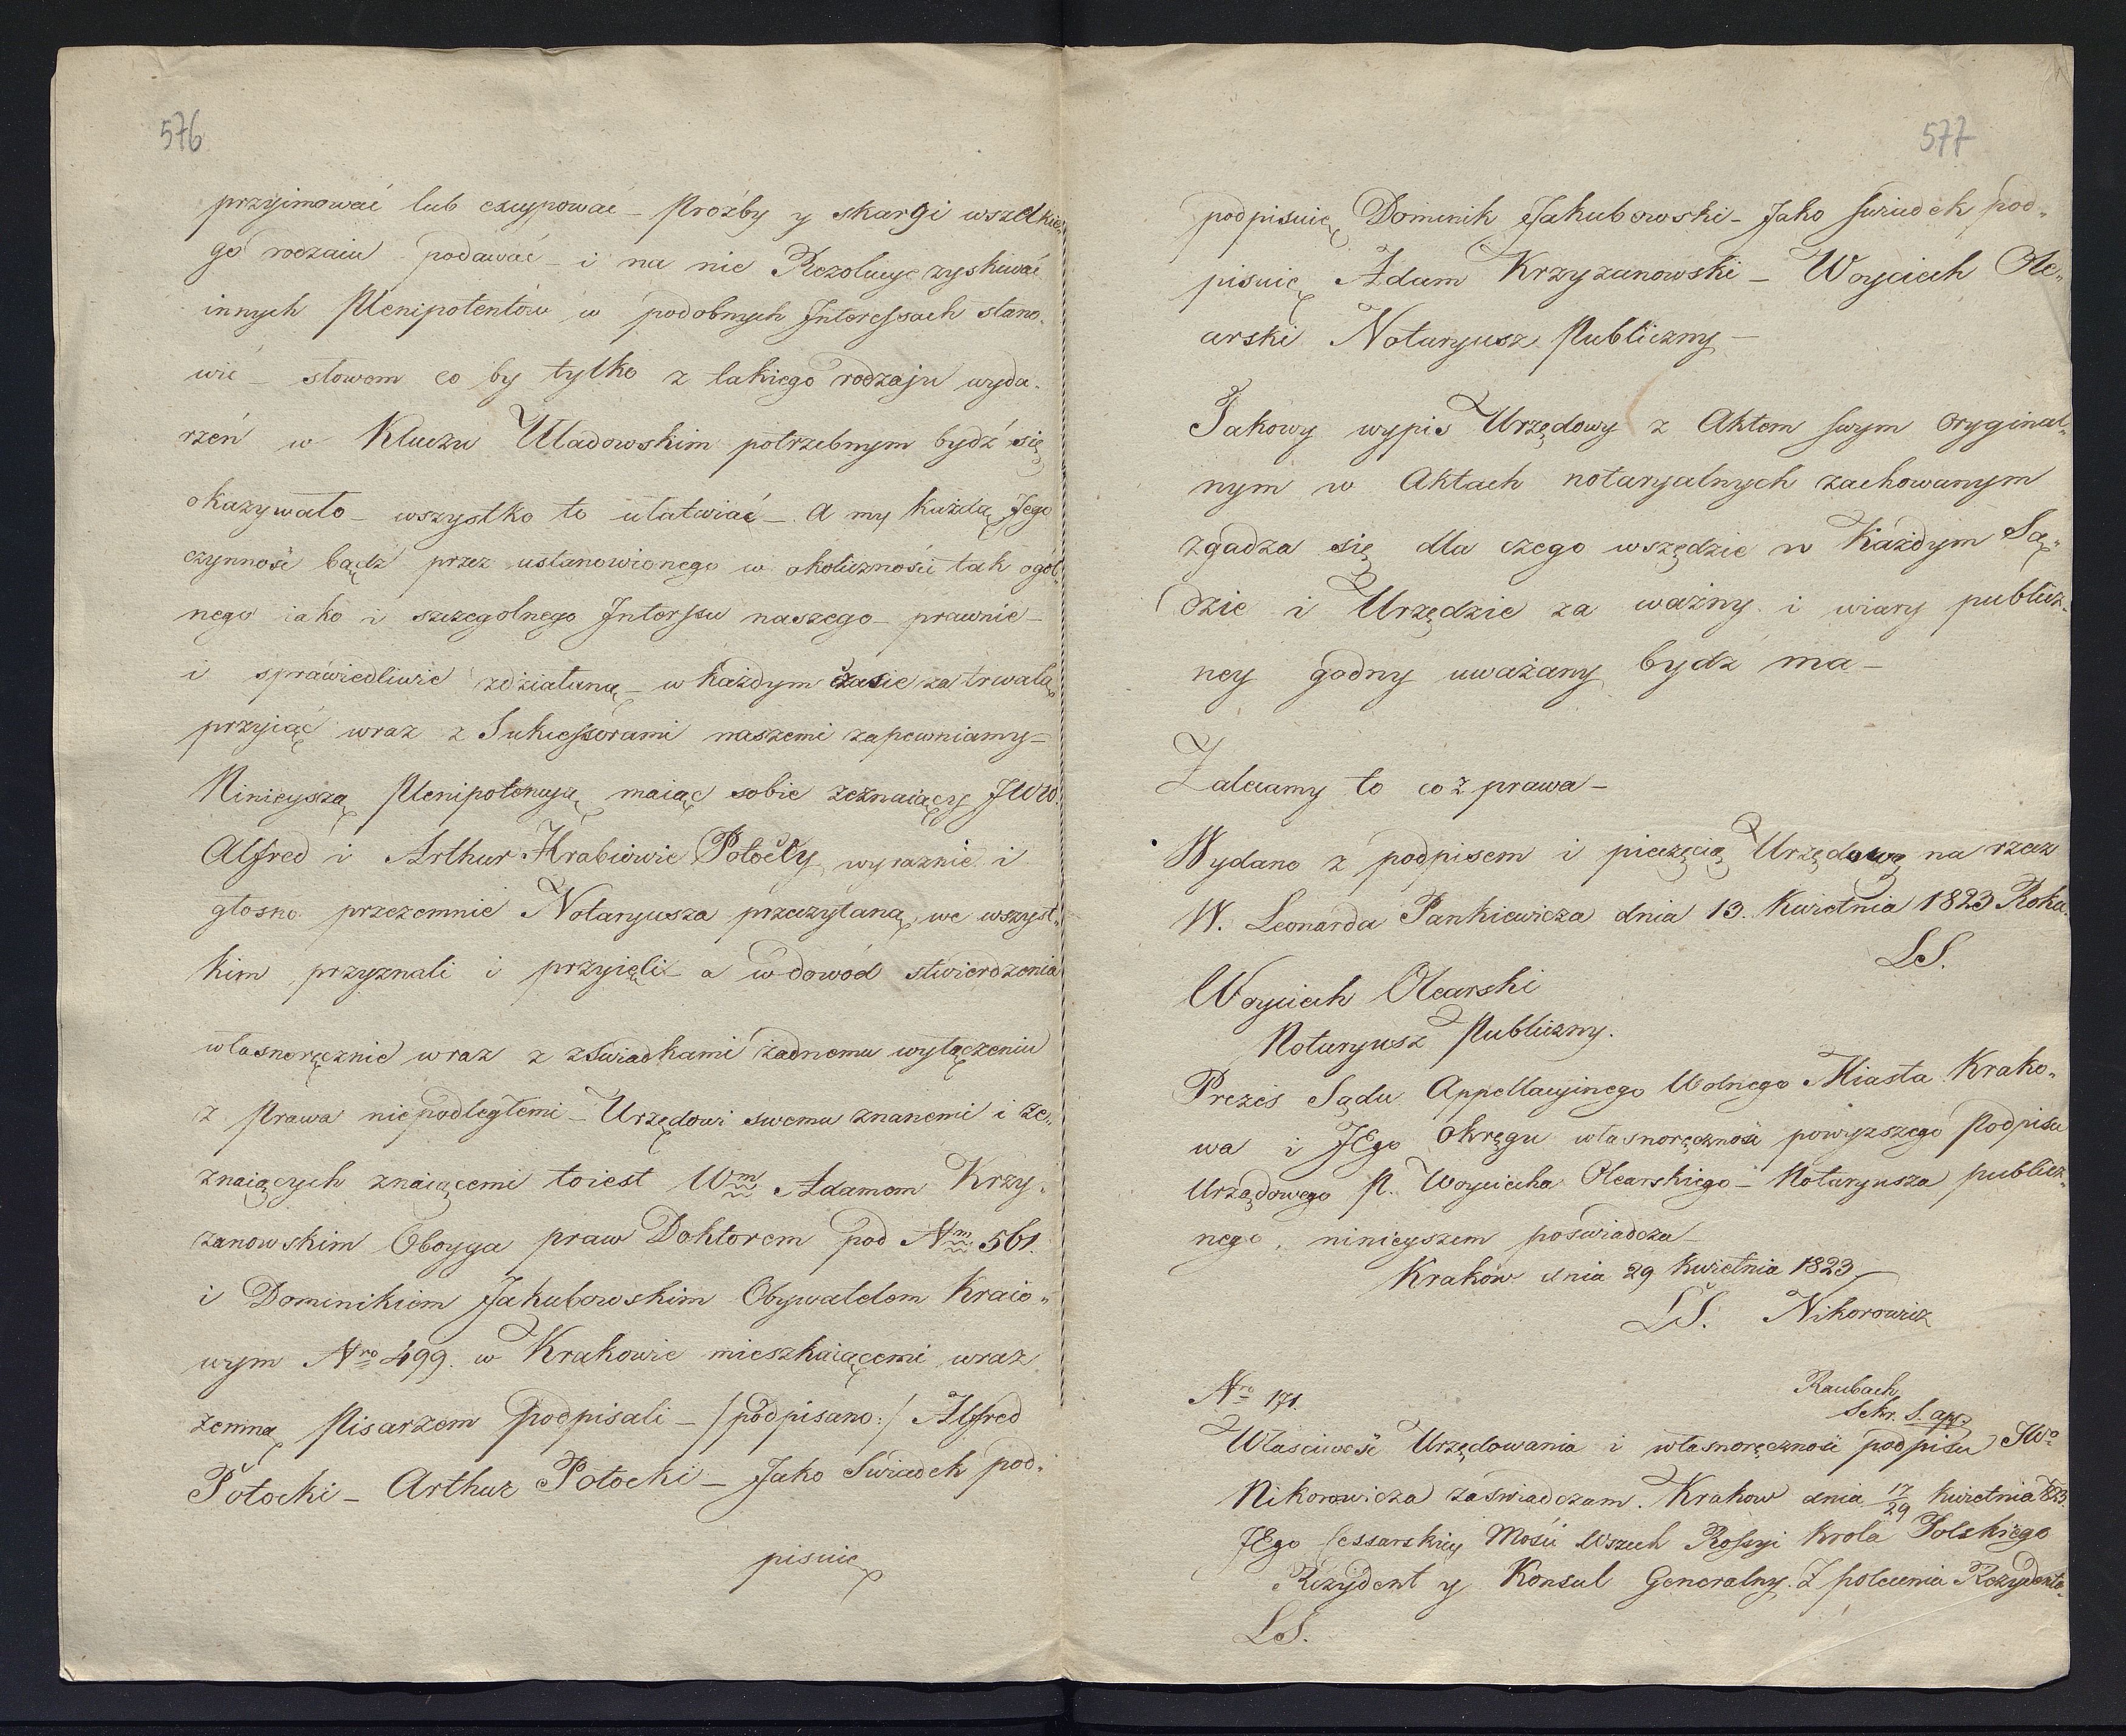 576
przyimować lub excypować – Prożby y skargi wszelkie„
go rodzaiu podawać – i na nie Rezolucye zyskiwać
innych Plenipotentów w podobnych Interessach stano„
wić – słowem co by tylko z takiego rodzaju wyda„
rzeń w Kluczu Uladowskim potrzebnym bydź się
okazywało – wszystko to ułatwiać –. A my każdą Jego
czynność bądź przez ustanowionego w okoliczności tak ogól„
nego iako i szczegolnego Interssu naszego – prawnie –
i sprawiedliwie zdziałaną – w każdym czasie za trwałą
przyiąć wraz z Sukcessorami naszemi zapewniamy –
Ninieyszą Plenipotencyą maiąc sobie zeznaiący JWW
Alfred i Arthur Hrabiowie Potoccy wyraznie i
głosno przezemnie Notaryusza przeczytaną we wszyst„
kim przyznali i przyięli – a w dowód stwierdzenia
własnoręcznie wraz z zSwiadkami żadnemu wyłączeniu
z Prawa niepodległemi – Urzędowi swemu znanemi i ze„
znaiących znaiącemi toiest Wm Adamem Krzy„
żanowskim Oboyga praw Doktorem pod Nm 561.
i Dominikiem Jakubowskim Obywatelem Kraio„
wym Nro 499. w Krakowie mieszkaiącemi wraz
zemną Pisarzem podpisali – /podpisano:/ Alfred
Potocki – Arthur Potocki – Jako Swiadek pod„
pisuię
577
podpisuię Dominik Jakubowski – Jako swiadek pod„
pisuię Adam Krzyżanowski – Woyciech Ole„
arski Notaryusz Publiczny –
Takowy wypis Urzędowy z Aktem swym oryginal„
nym w Aktach notaryalnych zachowanym
zgadza się dla czego wszędzie w Każdym Są„
dzie i Urzędzie za ważny i wiary publicz„
ney godny uważany bydź ma –
Zalecamy to co z prawa –
Wydano z podpisem i pieczęcią Urzędową na rzecz
W. Leonarda Pankiewicza dnia 13. Kwietnia 1823 Roku.
LS.
Woyciech Olearski
Notaryusz Publiczny.
Prezes Sądu Appellacyinego Wolnego Miasta Krako„
wa i JEgo Okręgu własnoręczność powyzszego Podpisu
Urzędowego P. Woyciecha Olearskiego – Notaryusza publicz„
nego, ninieyszem poswiadcza –
Kraków dnia 29 Kwietnia 1823
LS. Nikorowicz
Nro 171.
Raubach
Sekr. S. app.
Własciwość Urzędowania i własnoręczność podpisu JWo
Nikorowicza zaswiadczam. Krakow dnia 17/29 kwietnia 1823.
JEgo Cessarskiey Mości Wszech Rossyi Krola Polskiego
Rezydent y Konsul Generalny. Z polecenia Rezydenta.
LS.